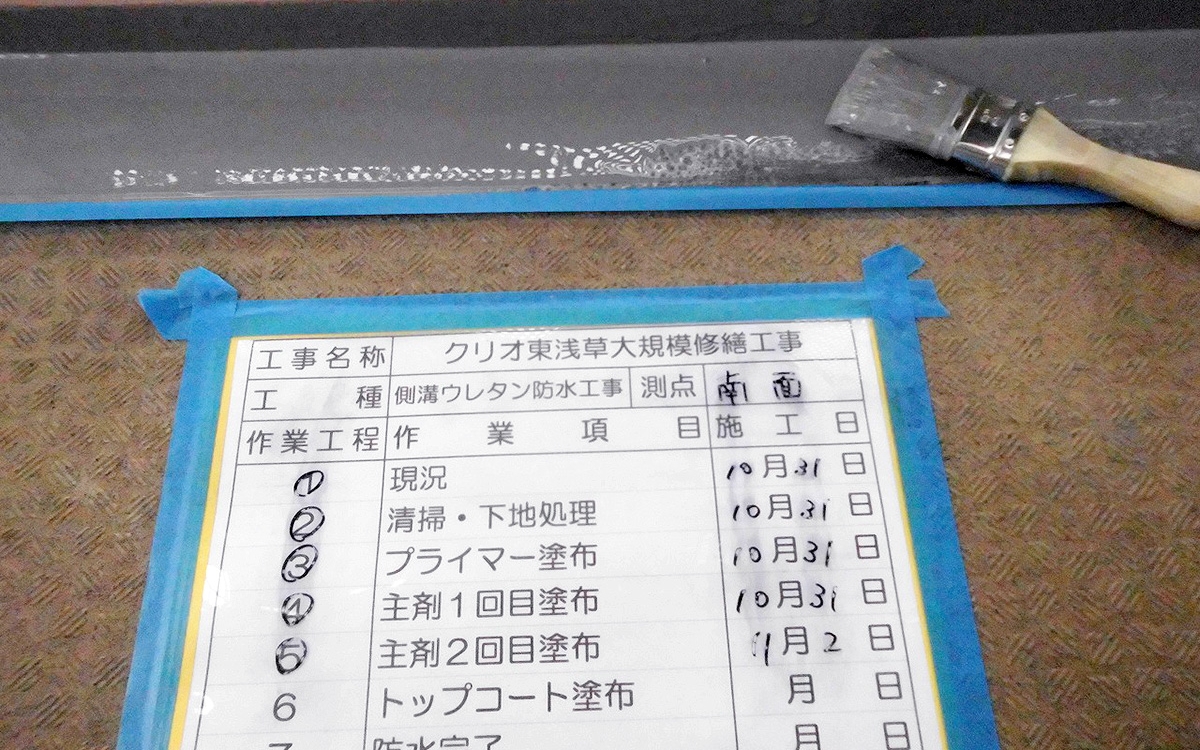 工事名称 クリオ東浅草大規模修繕工事
工種 側溝ウレタン防水工事 測点 南面
作業工程 作業項目 施工日
① 現況 10月31日
② 清掃・下地処理 10月31日
③ プライマー塗布 10月31日
④ 主剤1回目塗布 10月31日
⑤ 主剤2回目塗布 11月2日
6 トップコート塗布 月 日
7 防水完了 月 日